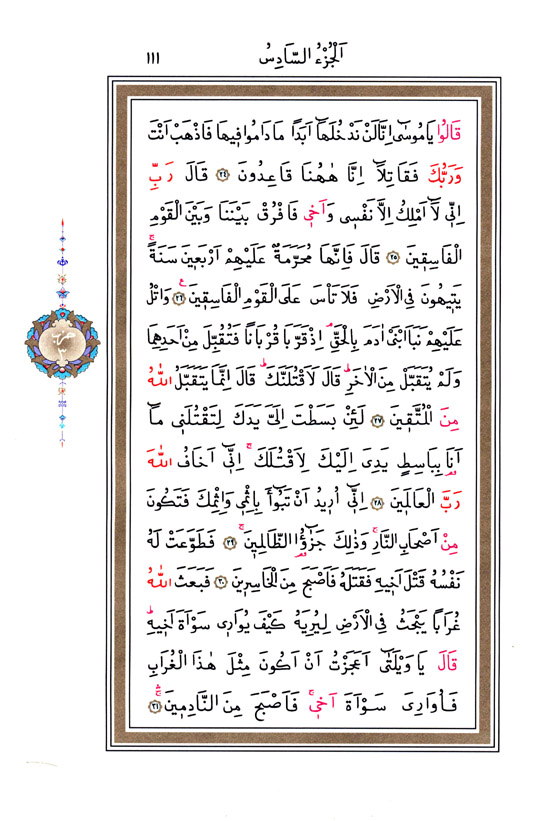 اَلْجُزْءُ السَّادِسُ
١١١
قَالُوا يَامُوسٰٓى اِنَّا لَنْ نَدْخُلَهَٓا اَبَدًا مَا دَامُوا ف۪يهَا فَاذْهَبْ اَنْتَ
وَرَبُّكَ فَقَاتِلَٓا اِنَّا هٰهُنَا قَاعِدُونَ ﴿٢٤﴾ قَالَ رَبِّ
اِنّ۪ي لَٓا اَمْلِكُ اِلَّا نَفْس۪ي وَاَخ۪ي فَافْرُقْ بَيْنَنَا وَبَيْنَ الْقَوْمِ
الْفَاسِق۪ينَ ﴿٢٥﴾ قَالَ فَاِنَّهَا مُحَرَّمَةٌ عَلَيْهِمْ اَرْبَع۪ينَ سَنَةًۚ
يَت۪يهُونَ فِي الْاَرْضِ فَلَا تَأْسَ عَلَى الْقَوْمِ الْفَاسِق۪ينَ۟ ﴿٢٦﴾ وَاتْلُ
عَلَيْهِمْ نَبَاَ ابْنَيْ اٰدَمَ بِالْحَقِّۢ اِذْ قَرَّبَا قُرْبَانًا فَتُقُبِّلَ مِنْ اَحَدِهِمَا
وَلَمْ يُتَقَبَّلْ مِنَ الْاٰخَرِۜ قَالَ لَاَقْتُلَنَّكَۜ قَالَ اِنَّمَا يَتَقَبَّلُ اللّٰهُ
مِنَ الْمُتَّق۪ينَ ﴿٢٧﴾ لَئِنْ بَسَطْتَ اِلَيَّ يَدَكَ لِتَقْتُلَن۪ي مَٓا
اَنَا۬ بِبَاسِطٍ يَدِيَ اِلَيْكَ لِاَقْتُلَكَۚ اِنّ۪ٓي اَخَافُ اللّٰهَ
رَبَّ الْعَالَم۪ينَ ﴿٢٨﴾ اِنّ۪ٓي اُر۪يدُ اَنْ تَبُٓوأَ بِاِثْم۪ي وَاِثْمِكَ فَتَكُونَ
مِنْ اَصْحَابِ النَّارِۚ وَذٰلِكَ جَزٰٓؤُا الظَّالِم۪ينَۚ ﴿٢٩﴾ فَطَوَّعَتْ لَهُ
نَفْسُهُ قَتْلَ اَخ۪يهِ فَقَتَلَهُ فَاَصْبَحَ مِنَ الْخَاسِر۪ينَ ﴿٣٠﴾ فَبَعَثَ اللّٰهُ
غُرَابًا يَبْحَثُ فِي الْاَرْضِ لِيُرِيَهُ كَيْفَ يُوَار۪ي سَوْاَةَ اَخ۪يهِۜ
قَالَ يَا وَيْلَتٰٓى اَعَجَزْتُ اَنْ اَكُونَ مِثْلَ هٰذَا الْغُرَابِ
فَاُوَارِيَ سَوْاَةَ اَخ۪يۚ فَاَصْبَحَ مِنَ النَّادِم۪ينَۚۛ ﴿٣١﴾